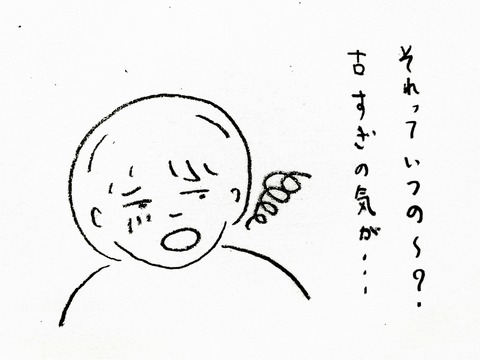 それっていつの〜?
古すぎの気が...